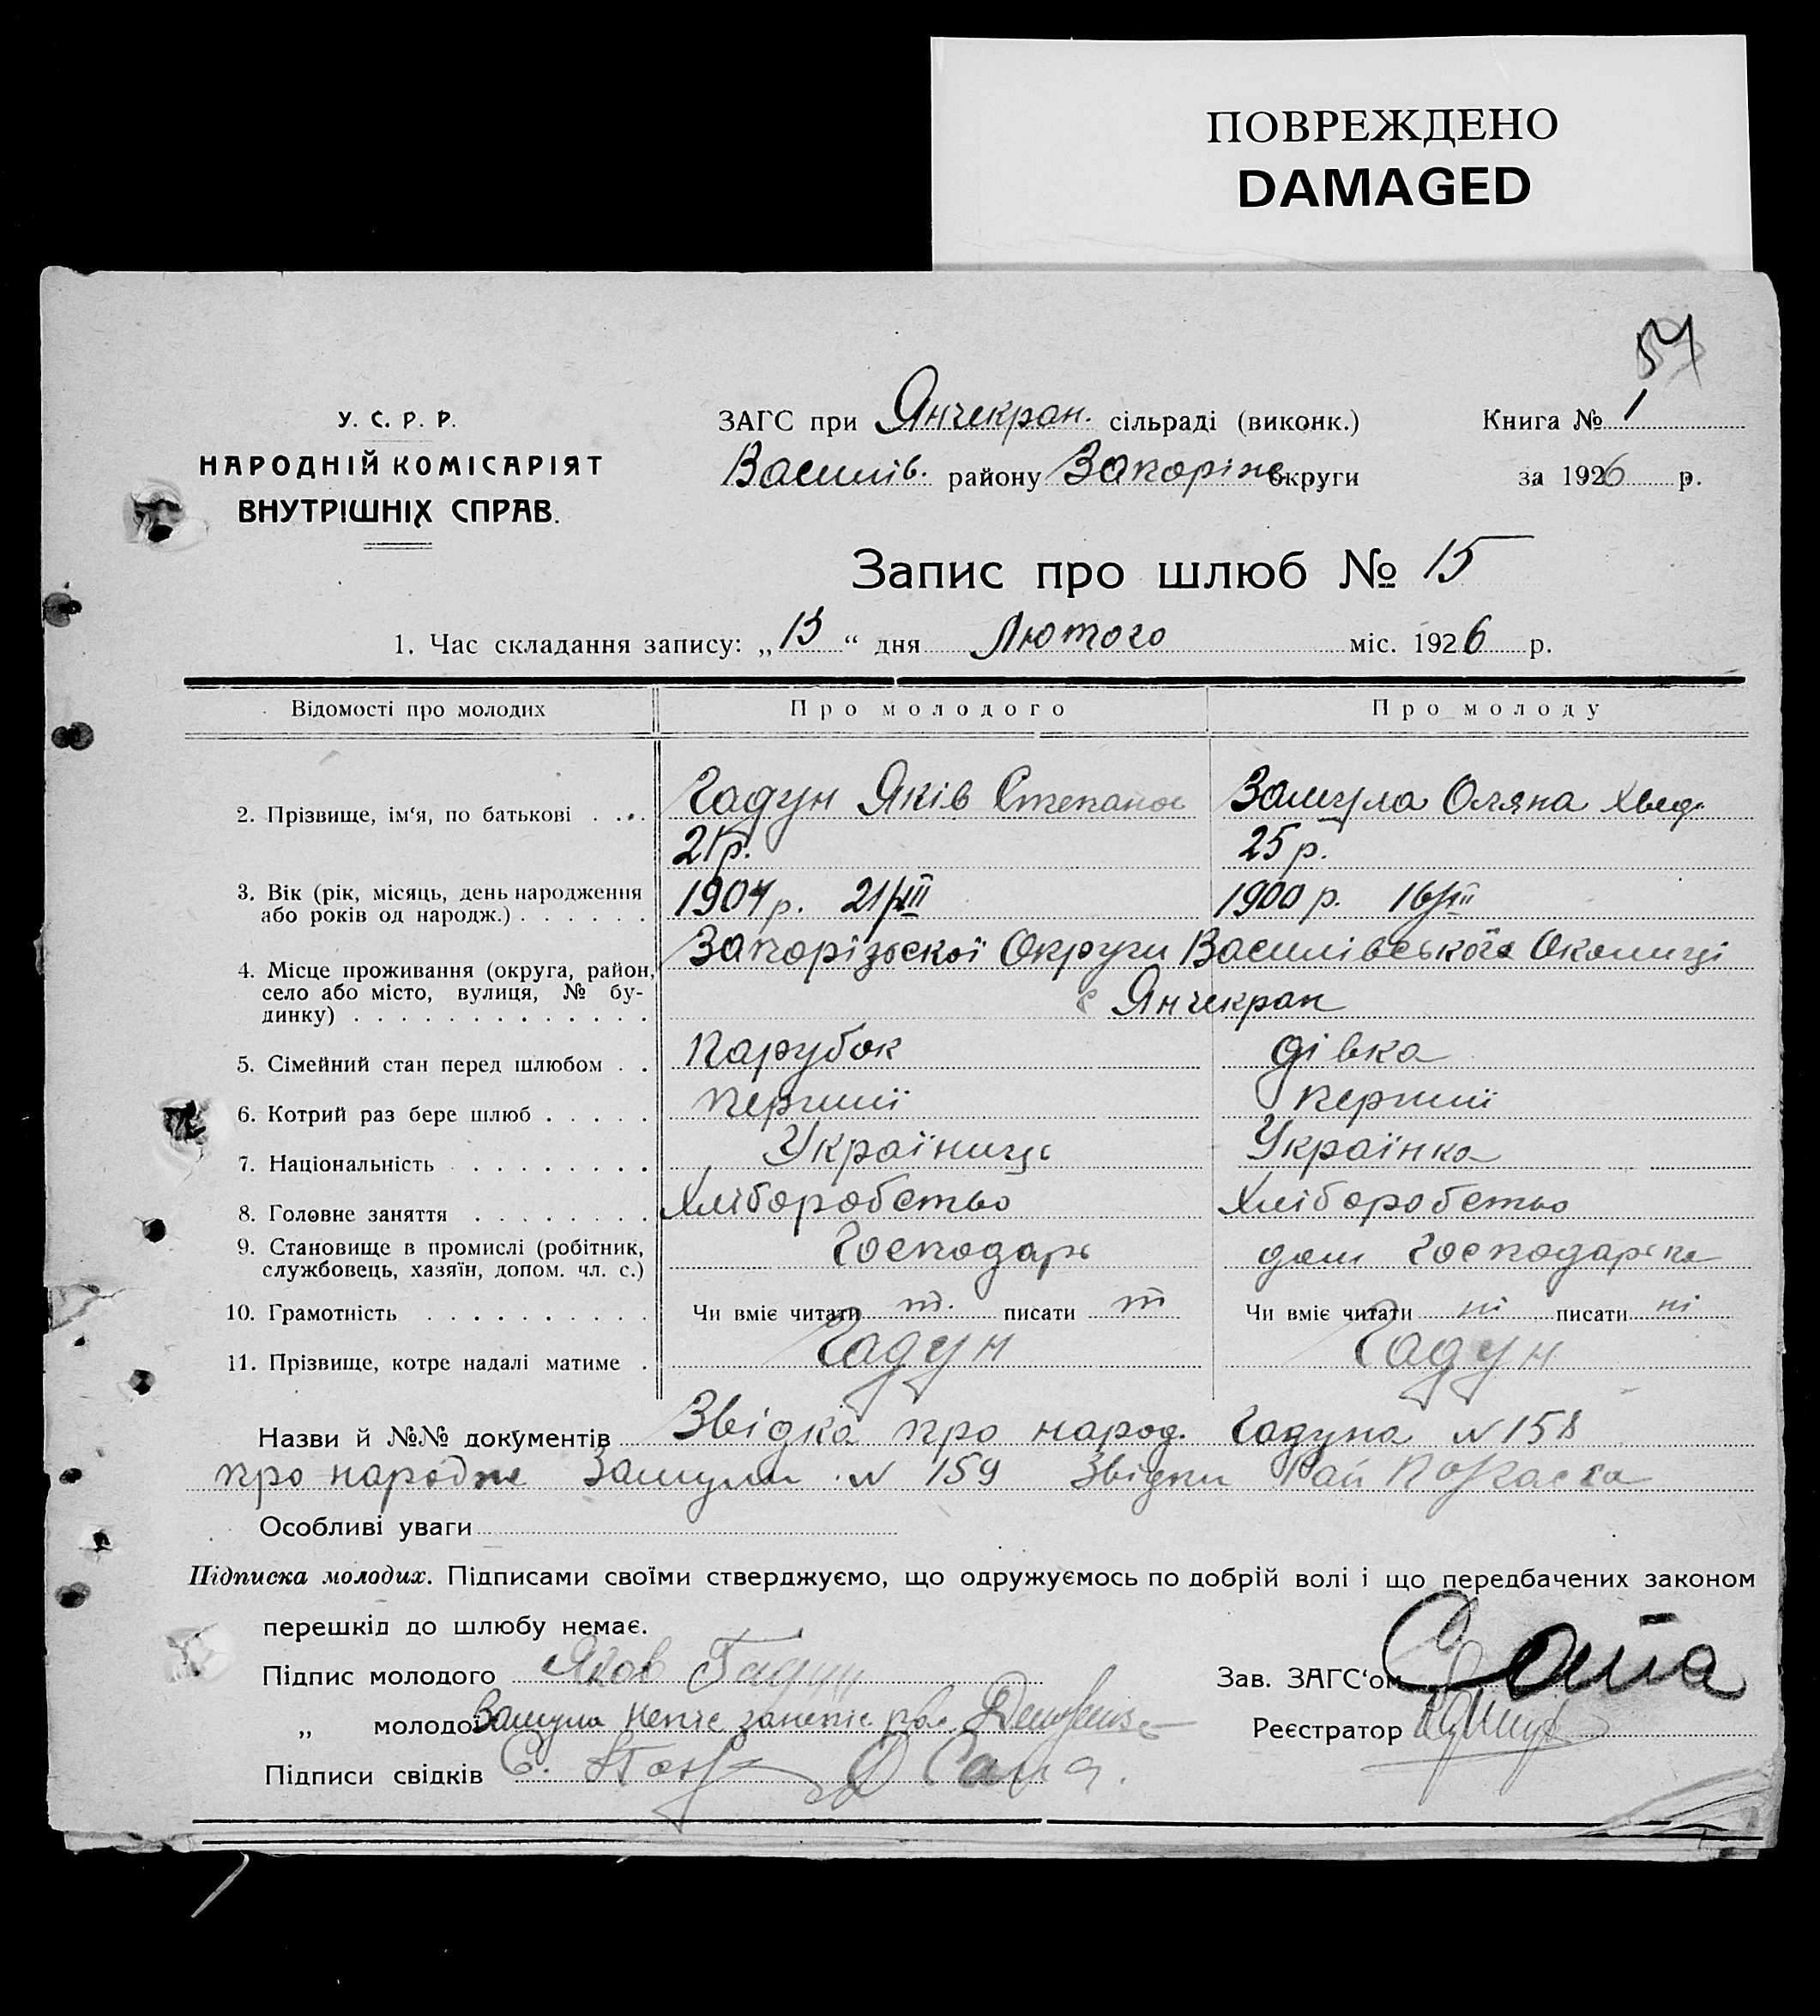 ПОВРЕЖДЕНО
DAMAGED
У. С. Р. Р.
НАРОДНІЙ КОМІСАРІЯТ
ВНУТРІШНІХ СПРАВ.
ЗАГС при Янчекрак. сільраді (виконк.)
Василів. району Запоріж округи
Книга № 1
за 1926 р.
Запис про шлюб № 15
1. Час складання запису: „13“ дня Лютого міс. 1926 р.
Відомості про молодих Про молодого Про молоду
2. Прізвище, ім‘я, по батькові . . . Гадун Яків Степанов Замула Оляна Хвед.
21р. 25р.
3. Вік (рік, місяць, день народження
або років од народж.) . . . . . . 1904р. 21/III 1900 р. 16/III
4. Місце проживання (округа, район, Запорізьскої Округи Василівської Околиці
село або місто, вулиця, № бу-
динку) . . . . . . . . . . . . . с Янчекрак
5. Сімейний стан перед шлюбом . . Парубок дівка
6. Котрий раз бере шлюб . . . . . перший перший
7. Національність . . . . . . . . Україниць Українка
8. Головне заняття . . . . . . . . Хліборобство Хліборобство
9. Становище в промислі (робітник,
службовець, хазяїн, допом. чл. с.) Господарь дом Господарька
10. Грамотність . . . . . . . . . . Чи вміє читати т. писати т Чи вміє читати ні писати ні
11. Прізвище, котре надалі матиме . Гадун Гадун
Назви й №№ документів Звідка про народ. Гадуна N 158
про народже Замули N 159 Звідки
Особливі уваги
Підписка молодих. Підписами своїми стверджуємо, що одружуємось по добрій волі і що передбачених законом
перешкід до шлюбу немає.
Підпис молодого Яков Гадун
Зав. ЗАГС‘ом Сапа
„ молодої Замула
Реєстратор
Підписи свідків С. Сапа